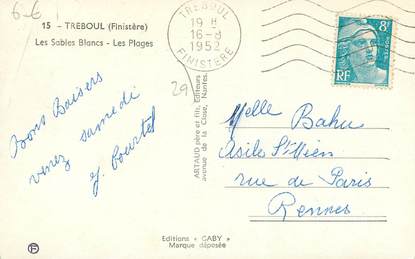 6-6
15 - TREBOUL (Finistère)
Les Sables Blancs - Les Plages
TREBOUL
19 H
16-8
1952
FINISTERE
8F
RF
29
ARTAUD père et fils, Editeurs
avenue de la Close, Nantes.
Bons Baisers
venez samedi
Melle Bahu
Asile St Méen
rue de Paris
Rennes
Editions "GABY"
Marque déposée